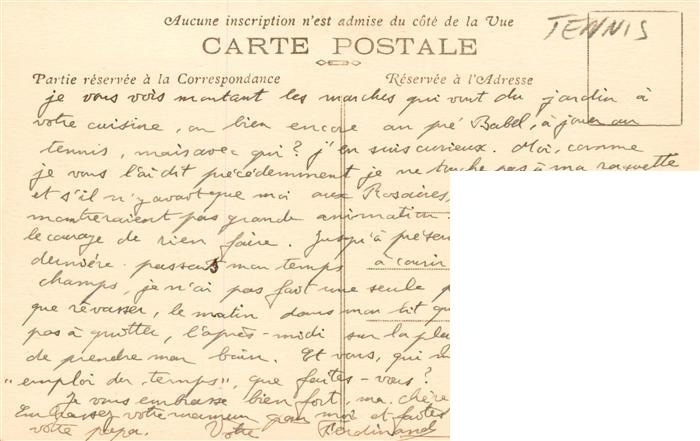 Aucune inscription n'est admise du côté de la Vue
TENNIS
CARTE POSTALE
Partie réservée à la Correspondance
Réservée à l'Adresse
je vous vois montant les marches qui vont du jardin à
votre cuisine, ou bien encore au pré Babel, à jouer au
tennis, mais avec qui? j'en suis curieux. Moi, comme
je vous l'ai dit précédemment je ne touche pas à ma raquette
et s'il n'y avait que moi aux Rosaires,
montreraient pas grande animation.
le courage de rien faire. Jusqu'à présen
dernière passant mon temps à courir
champs, je n'ai pas fait une seule p
que rêvasser, le matin dans mon lit qu
pas à quitter, l'après-midi sur la pla
de prendre mon bain. Et vous, qui m
"emploi du temps", que faites-vous?
Je vous embrasse bien fort, ma chère
Embrassez votre maman pour moi et faites
votre papa. Votre Ferdinand